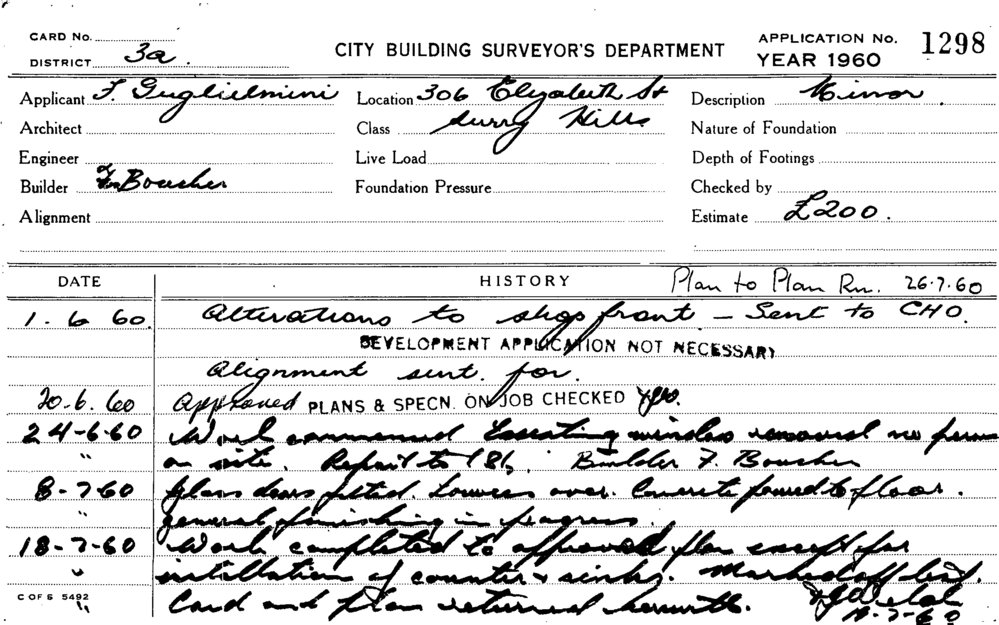 CARD No.
DISTRICT 3a.
CITY BUILDING SURVEYOR'S DEPARTMENT
APPLICATION No. 1298
YEAR 1960
Applicant F. Guglielmini
Location 306 Elizabeth St
Description Minor.
Architect
Class Surry Hills
Nature of Foundation
Engineer
Live Load
Depth of Footings
Builder F. Bousher
Foundation Pressure
Checked by
Alignment
Estimate £200.
DATE
HISTORY Plan to Plan Rm. 26.7.60
1. 6 60. Alterations to shop front – Sent to CHO.
DEVELOPMENT APPLICATION NOT NECESSARY
Alignment sent. for.
20-6. 60 Approved PLANS & SPECN. ON JOB CHECKED yes.
24-6-60 Work commenced Existing window removed no
" on site. Builder F. Bousher
8-7-60 Glass doors fitted. Louvers over. Concrete poured to floor.
" general finishing in progress.
18-7-60 Work completed to approved plan except for
" installation of counter & sinks. Marked off list.
C OF S 5492 " Card and plan returned herewith.
7-60